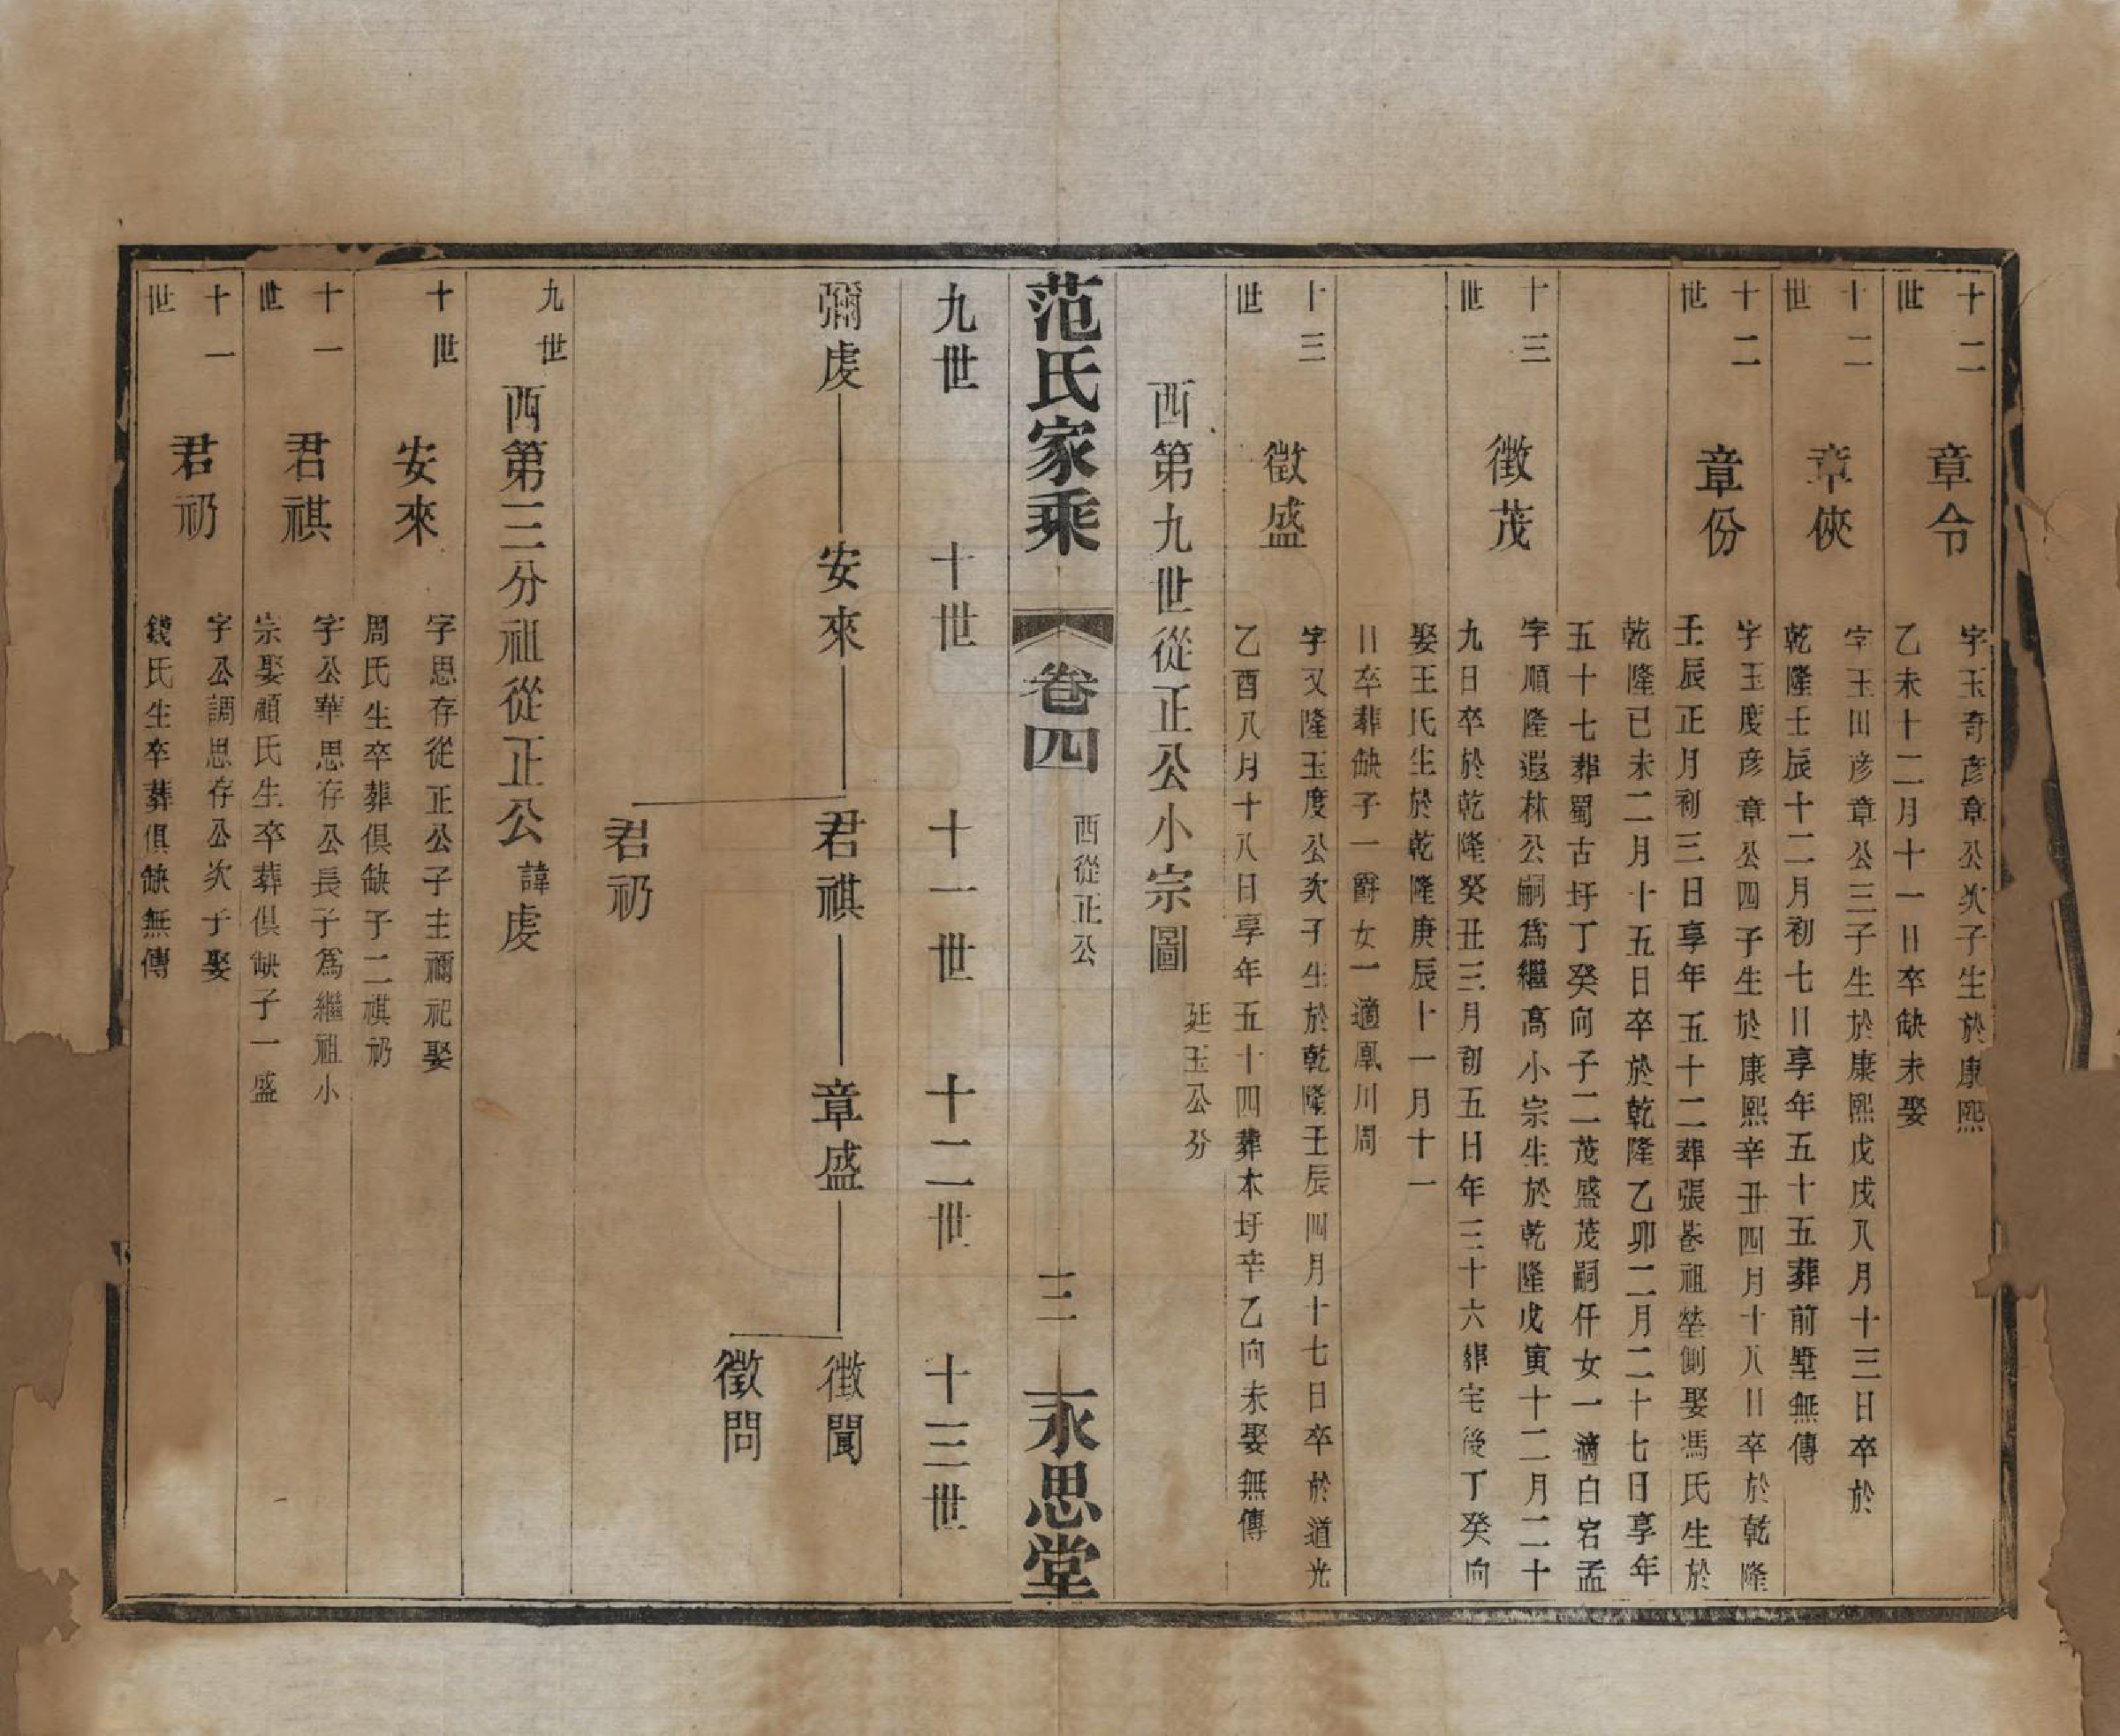 十二世 章令 字玉奇彥章公次子生於康熙
乙未十二月十一日卒缺未娶
十二世 章俠 字玉田彥章公三子生於康熙戊戌八月十三日卒於
乾隆壬辰十二月初七日享年五十五葬前墅無傳
十二世 章份 字玉度彥章公四子生於康熙辛丑四月十八日卒於乾隆
壬辰正月初三日享年五十二葬張巷祖塋側娶馮氏生於
乾隆已未二月十五日卒於乾隆乙卯二月二十七日享年
五十七葬蜀古圩丁癸向子二茂盛茂嗣仟女一適白宕孟
十三世 徵茂 字順隆遐林公嗣爲繼高小宗生於乾隆戊寅十二月二十
九日卒於乾隆癸丑三月初五日年三十六葬宅後丁癸向
娶王氏生於乾隆庚辰十一月十一
日卒葬缺子一爵女一適凰川周
十三世 徵盛 字又隆玉度公次子生於乾隆壬辰四月十七日卒於道光
乙酉八月十八日享年五十四葬木圩辛乙向未娶無傳
西第九世從正公小宗圖 延玉公分
范氏家乘 卷四 西從正公 三 永思堂
九世 十世 十一世 十二世 十三世
彌虔 安來 君祺 章盛 徵聞
君礽 徵問
九世 西第三分祖從正公 諱虔
十世 安來 字思存從正公子主禰祀娶
周氏生卒葬俱缺子二祺礽
十一世 君祺 字公華思存公長子爲繼祖小
宗娶顧氏生卒葬俱缺子一盛
十一世 君礽 字公調思存公次子娶
錢氏生卒葬俱缺無傳